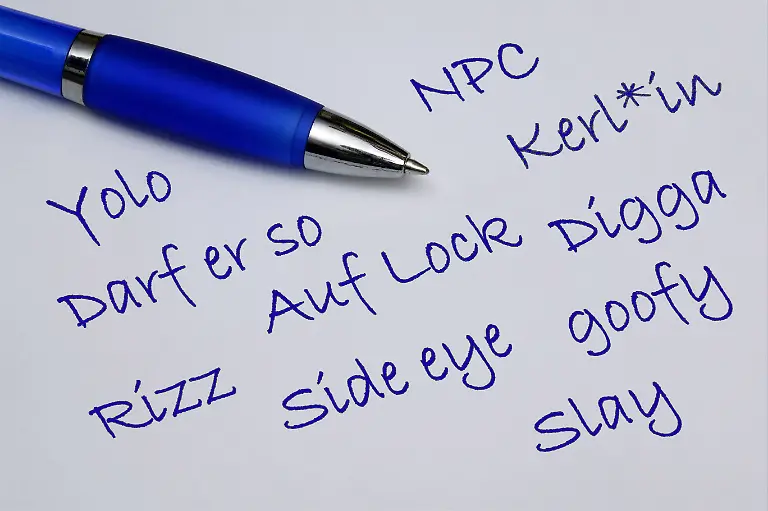 NPC
Kerl*in
Yolo
Darf er so
Auf Lock
Digga
Rizz
Side eye
goofy
Slay